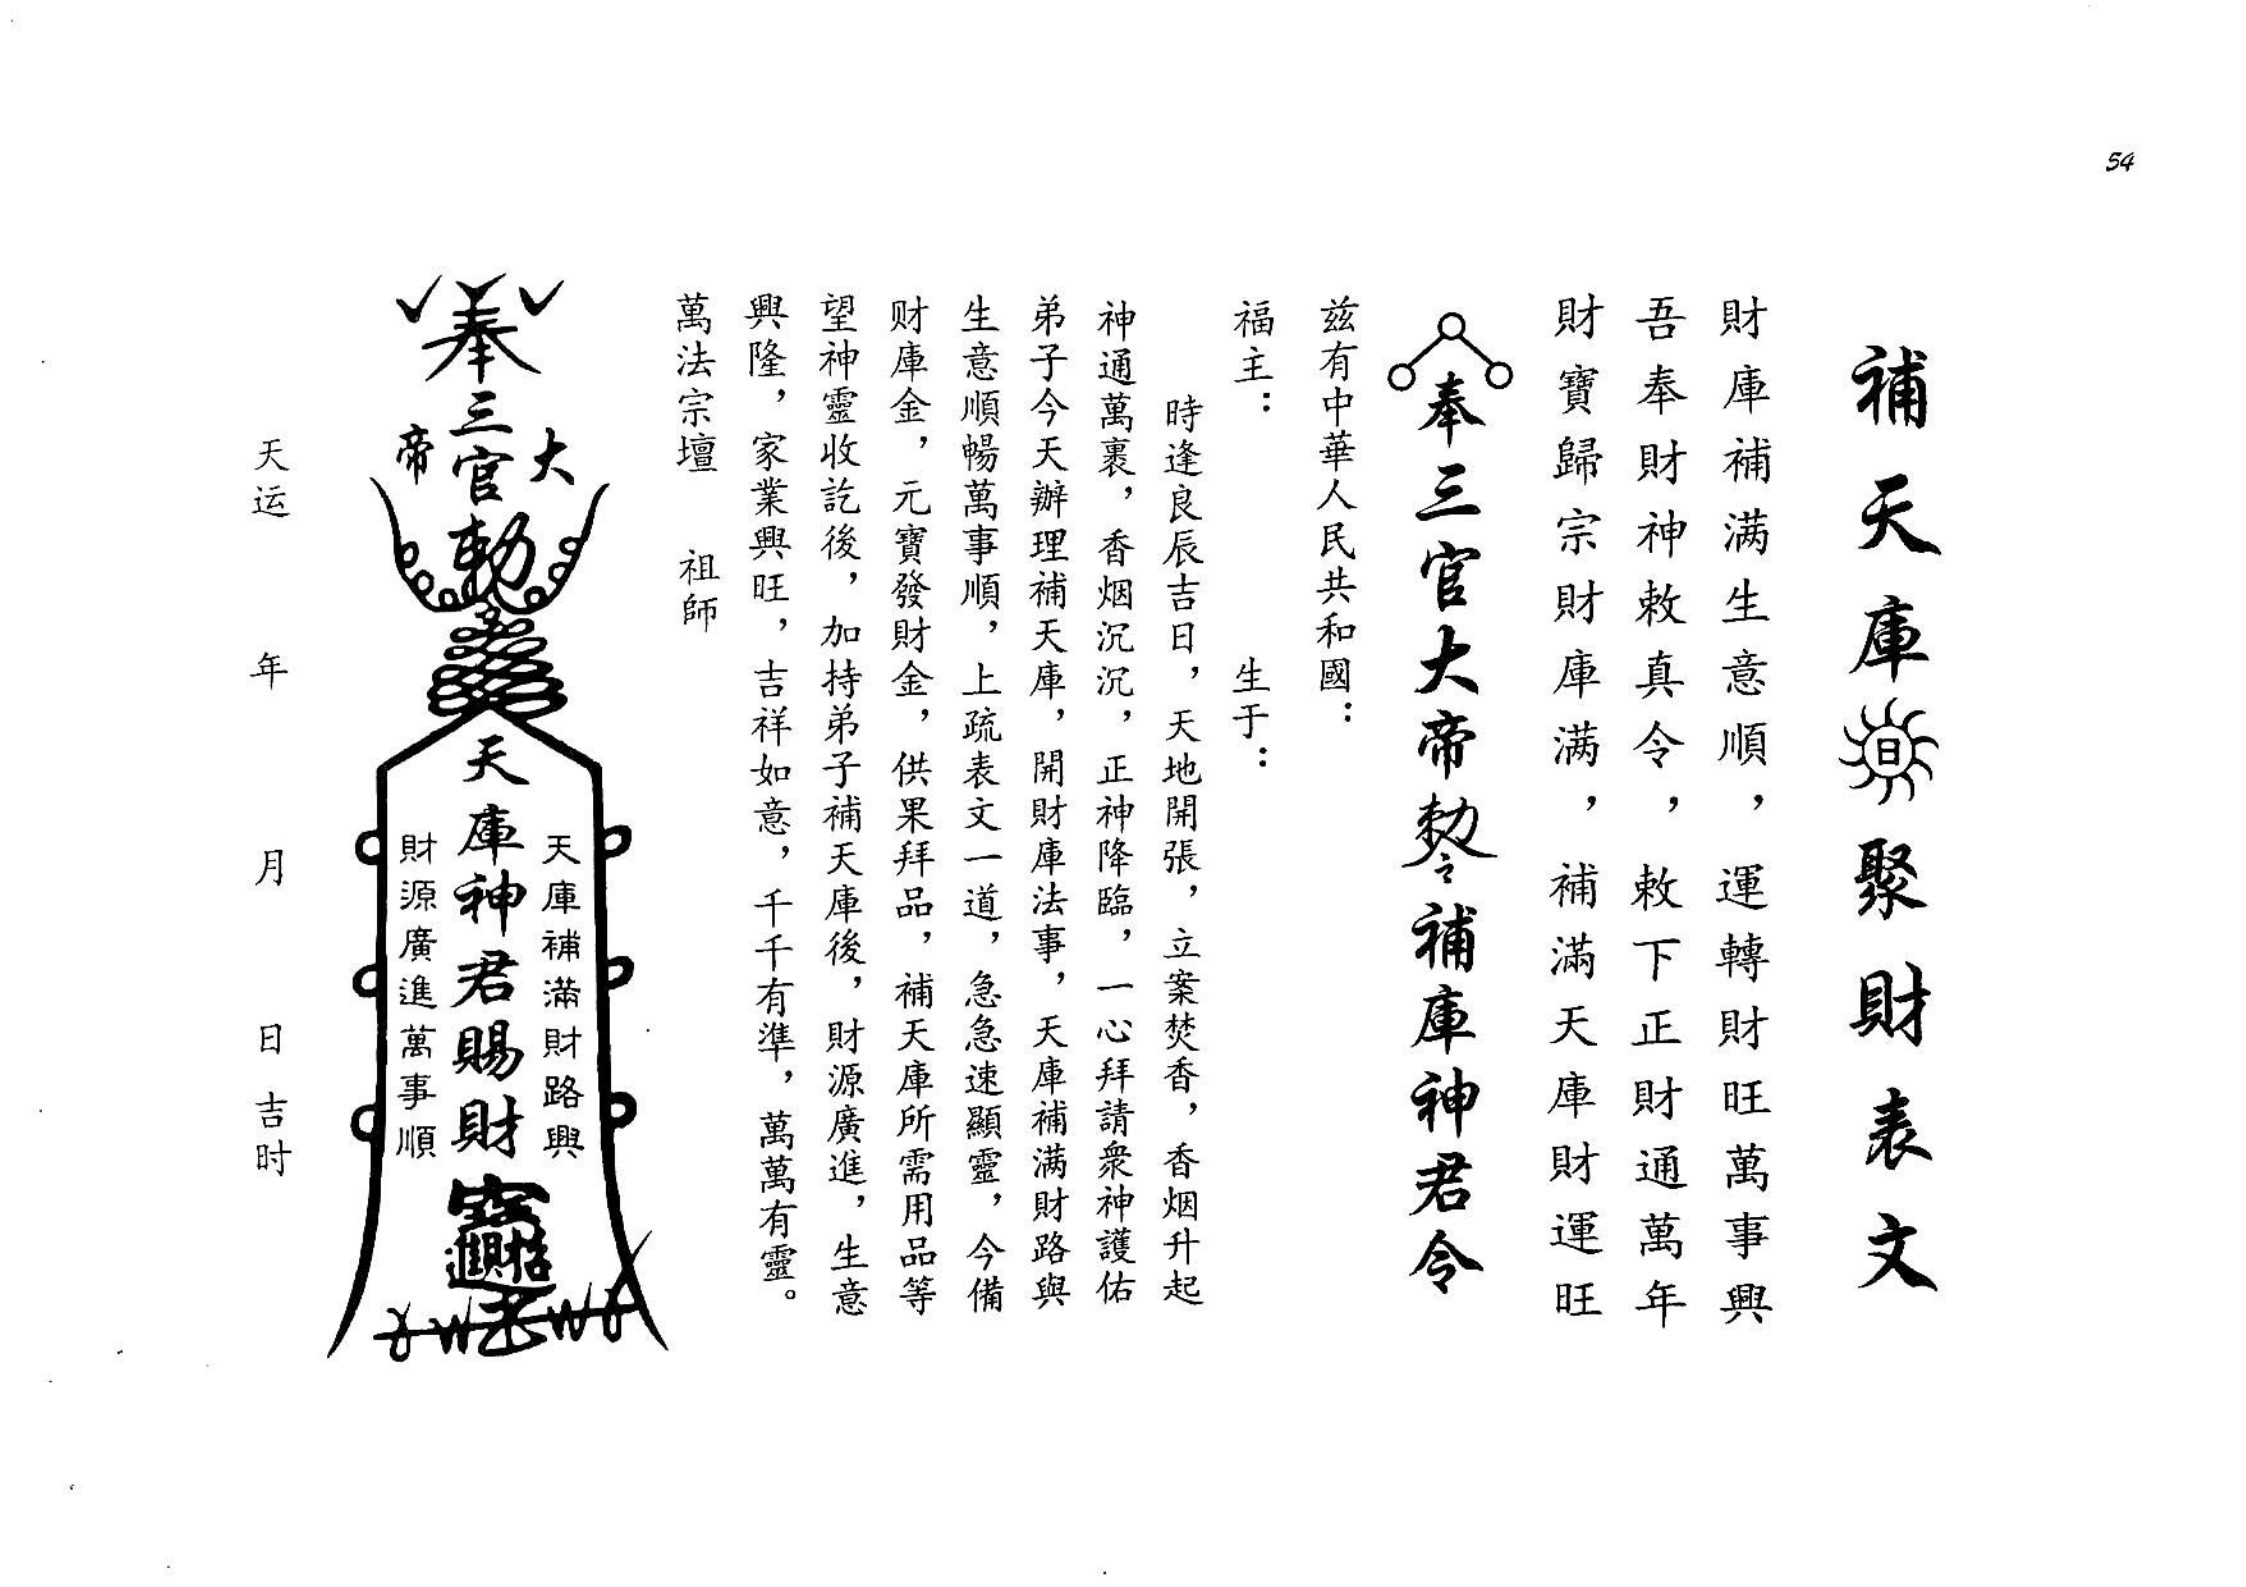 54
補天庫日聚財表文
財庫補满生意順，運轉財旺萬事興
吾奉財神敕真令，敕下正財通萬年
財寶歸宗財庫满，補滿天庫財運旺
奉三官大帝勅令補庫神君令
兹有中華人民共和國：
福主：　　　　　生于：
時逢良辰吉日，天地開張，立案焚香，香烟升起
神通萬裏，香烟沉沉，正神降臨，一心拜請衆神護佑
弟子今天辦理補天庫，開財庫法事，天庫補满財路與
生意順暢萬事順，上疏表文一道，急急速顯靈，今備
财庫金，元寶發財金，供果拜品，補天庫所需用品等
望神靈收訖後，加持弟子補天庫後，財源廣進，生意
興隆，家業興旺，吉祥如意，千千有準，萬萬有靈。
萬法宗壇　　祖師
奉
三官
大
帝
勅
天庫補滿財路興
天庫神君賜財
財源廣進萬事順
天运　　年　　月　　日吉时